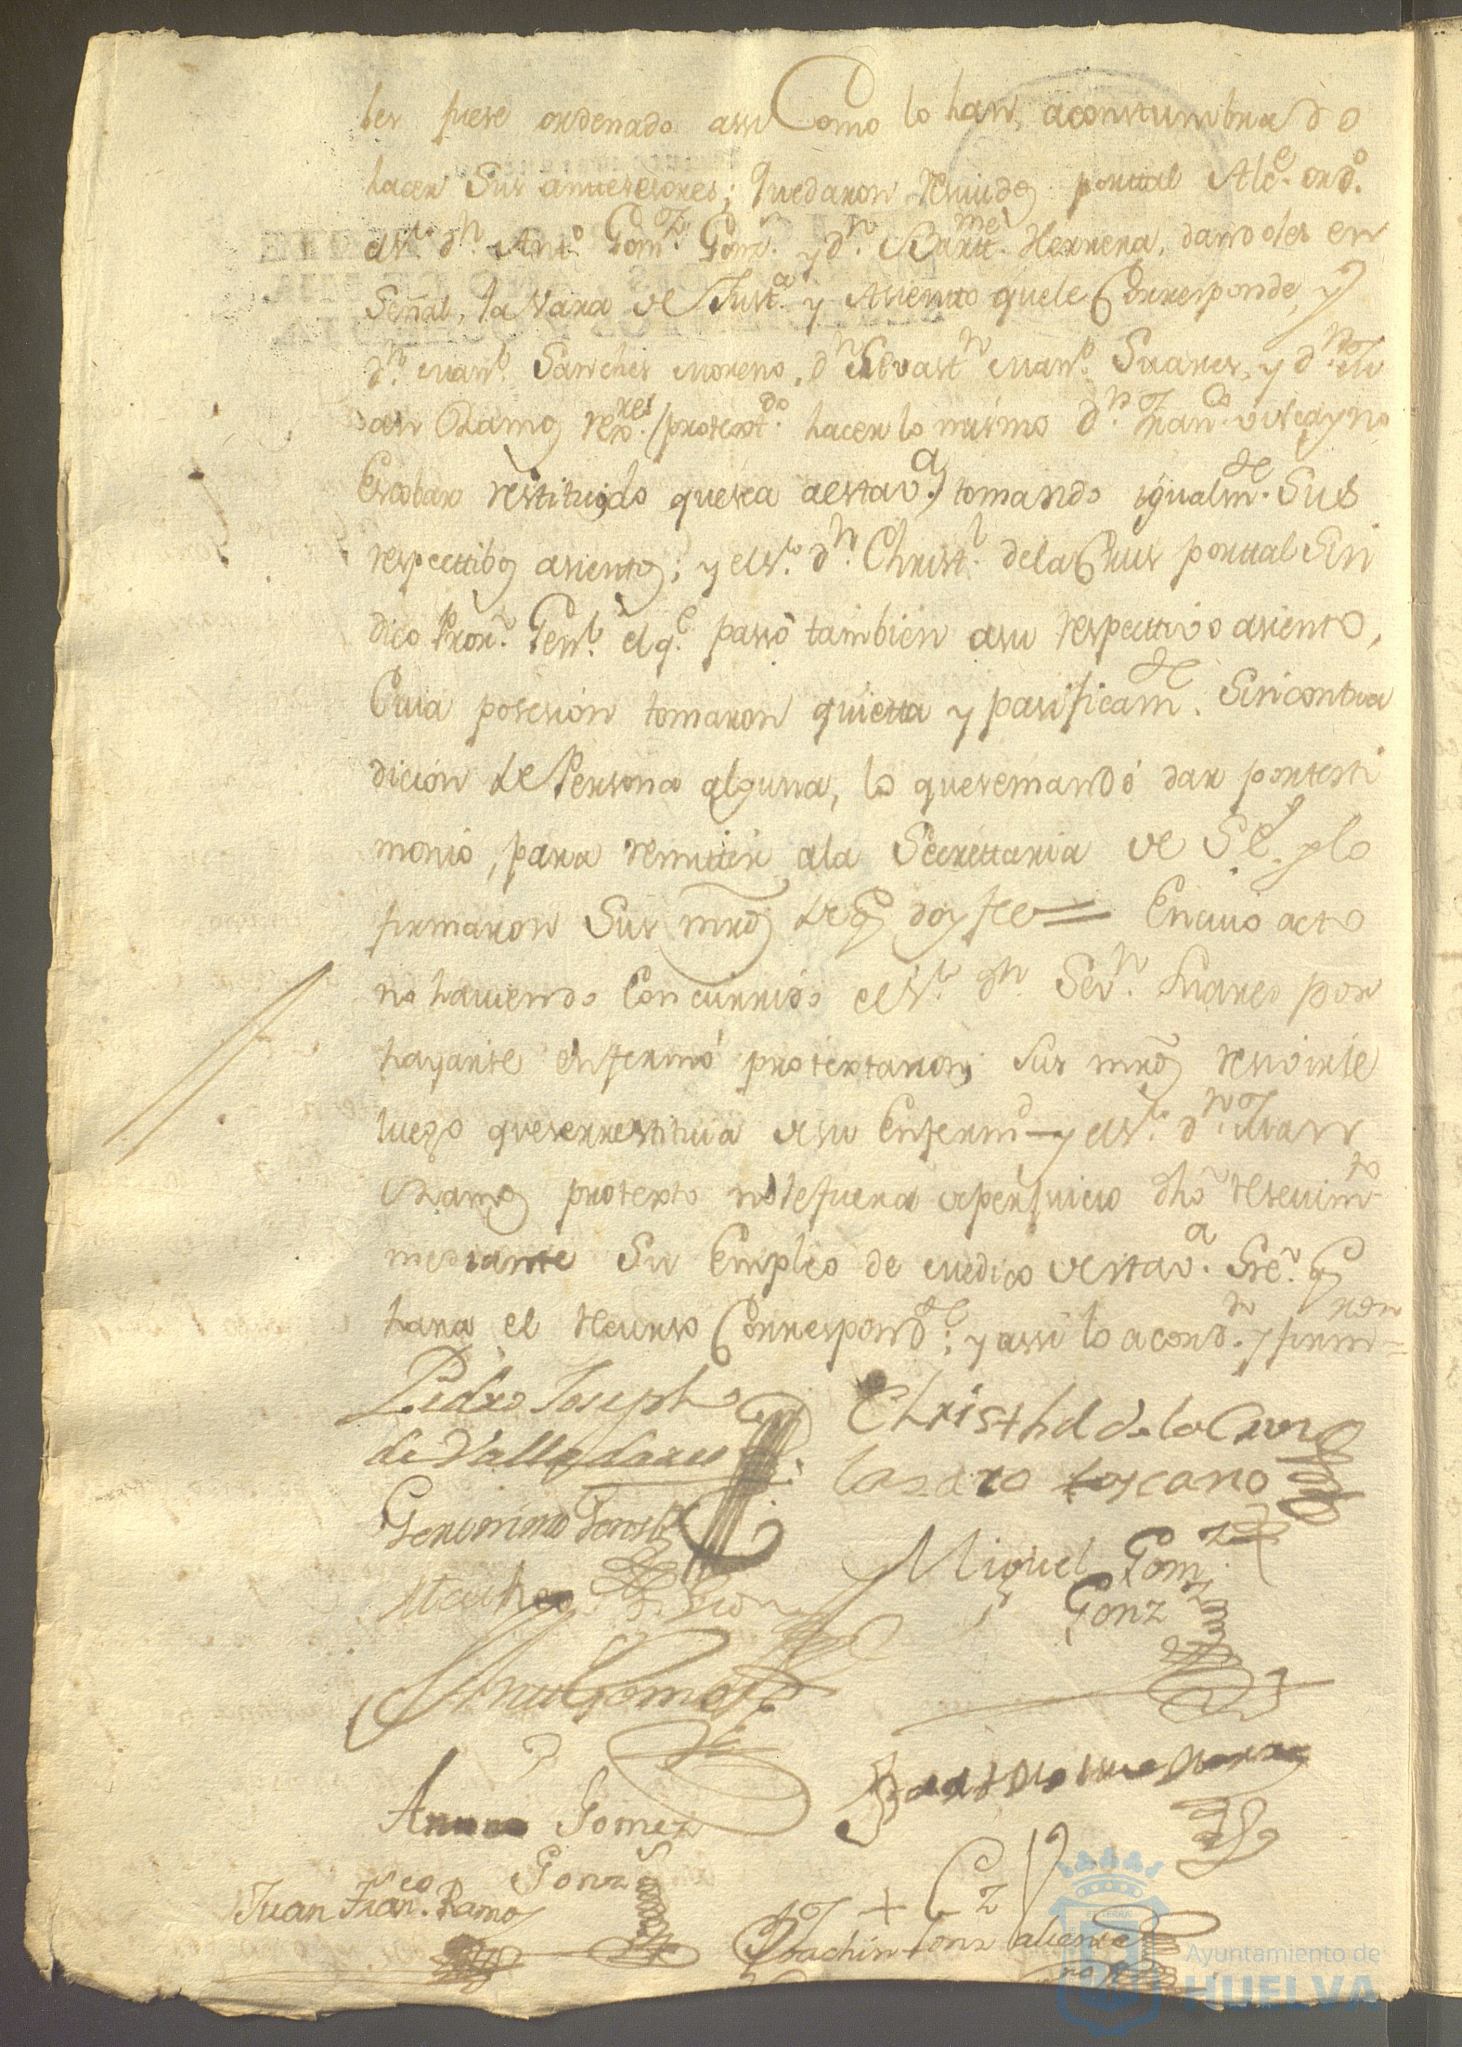 les fuese ordenado assi Como lo han acostumbrado
hacer Sus antesesores; quedaron resividos portal Alce. ordo.
el Sr. dn. Anto. Gomz. Gonz. y dn. Bartme. Herrera, dandoles en
Señal, la Vara de Justa. y Asiento quele Corresponde, y
dn. Manl. Sanches Moreno, dn. Sevastn. Manl. Suares, y dn. Ju
an Ramos rexres. (protextdo. hacer lo mismo dn. Franco. viscayno
Escobar restituido quesea aestava.) tomando igualmte. Sus
respecttibos asientos; y el Sr. dn. Christl. dela Crus porttal Sin
dico Pror. Genl. el qe. passo tambien asu respecttivo asiento,
Cuia posesion tomaron quietta y pasificamte. Sin contra
dicion de Persona alguna, lo quesemandó dar portesti
monio, para remittir ala Secrettaria de S. E. y lo
firmaron Sus mrds. de q doy fee = En cuio acto
no haviendo Concurrido el Sr. dn. Sevn. Suares por
hayarse enfermo protextaron Sus mrds resivirle
luego queserrestituia desu Enfermd. y el Sr. dn. Juan
Ramos protexto nolefuera deperjuicio dho resevimto.
mediante Su Empleo de Medico destava. Sre. q
hara el recurso Correspondte.; y assi lo acordn. y firmaron =
Pedro Joseph
de Valladares
Christhl de la Crus
Lazaro toscano
Geronimo
Miguel Gomz
Gonz
Matheo
Gomez
Anto Gomez
Gonz
Juan Franco. Ramos
Joachin
Ayuntamiento de
HUELVA